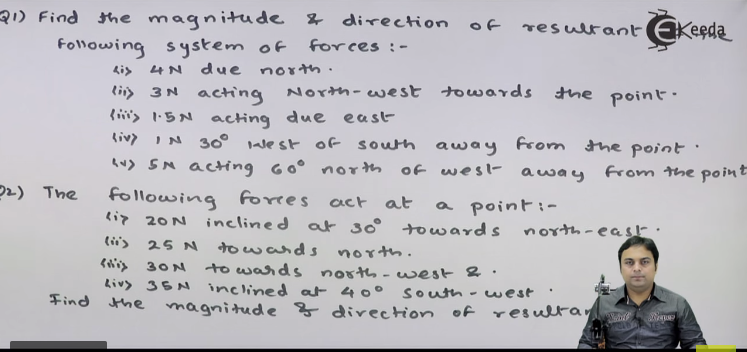 Q1) Find the magnitude & direction of resultant
EKeeda
following system of forces :-
(i) 4N due north.
(ii) 3N acting North-west towards the point.
(iii) 1.5N acting due east
(iv) 1N 30° West of south away from the point.
(v) 5N acting 60° north of west away from the point
Q2) The following forces act at a point:-
(i) 20N inclined at 30° towards north-east.
(ii) 25 N towards north.
(iii) 30N towards north-west & .
(iv) 35N inclined at 40° south-west .
Find the magnitude & direction of